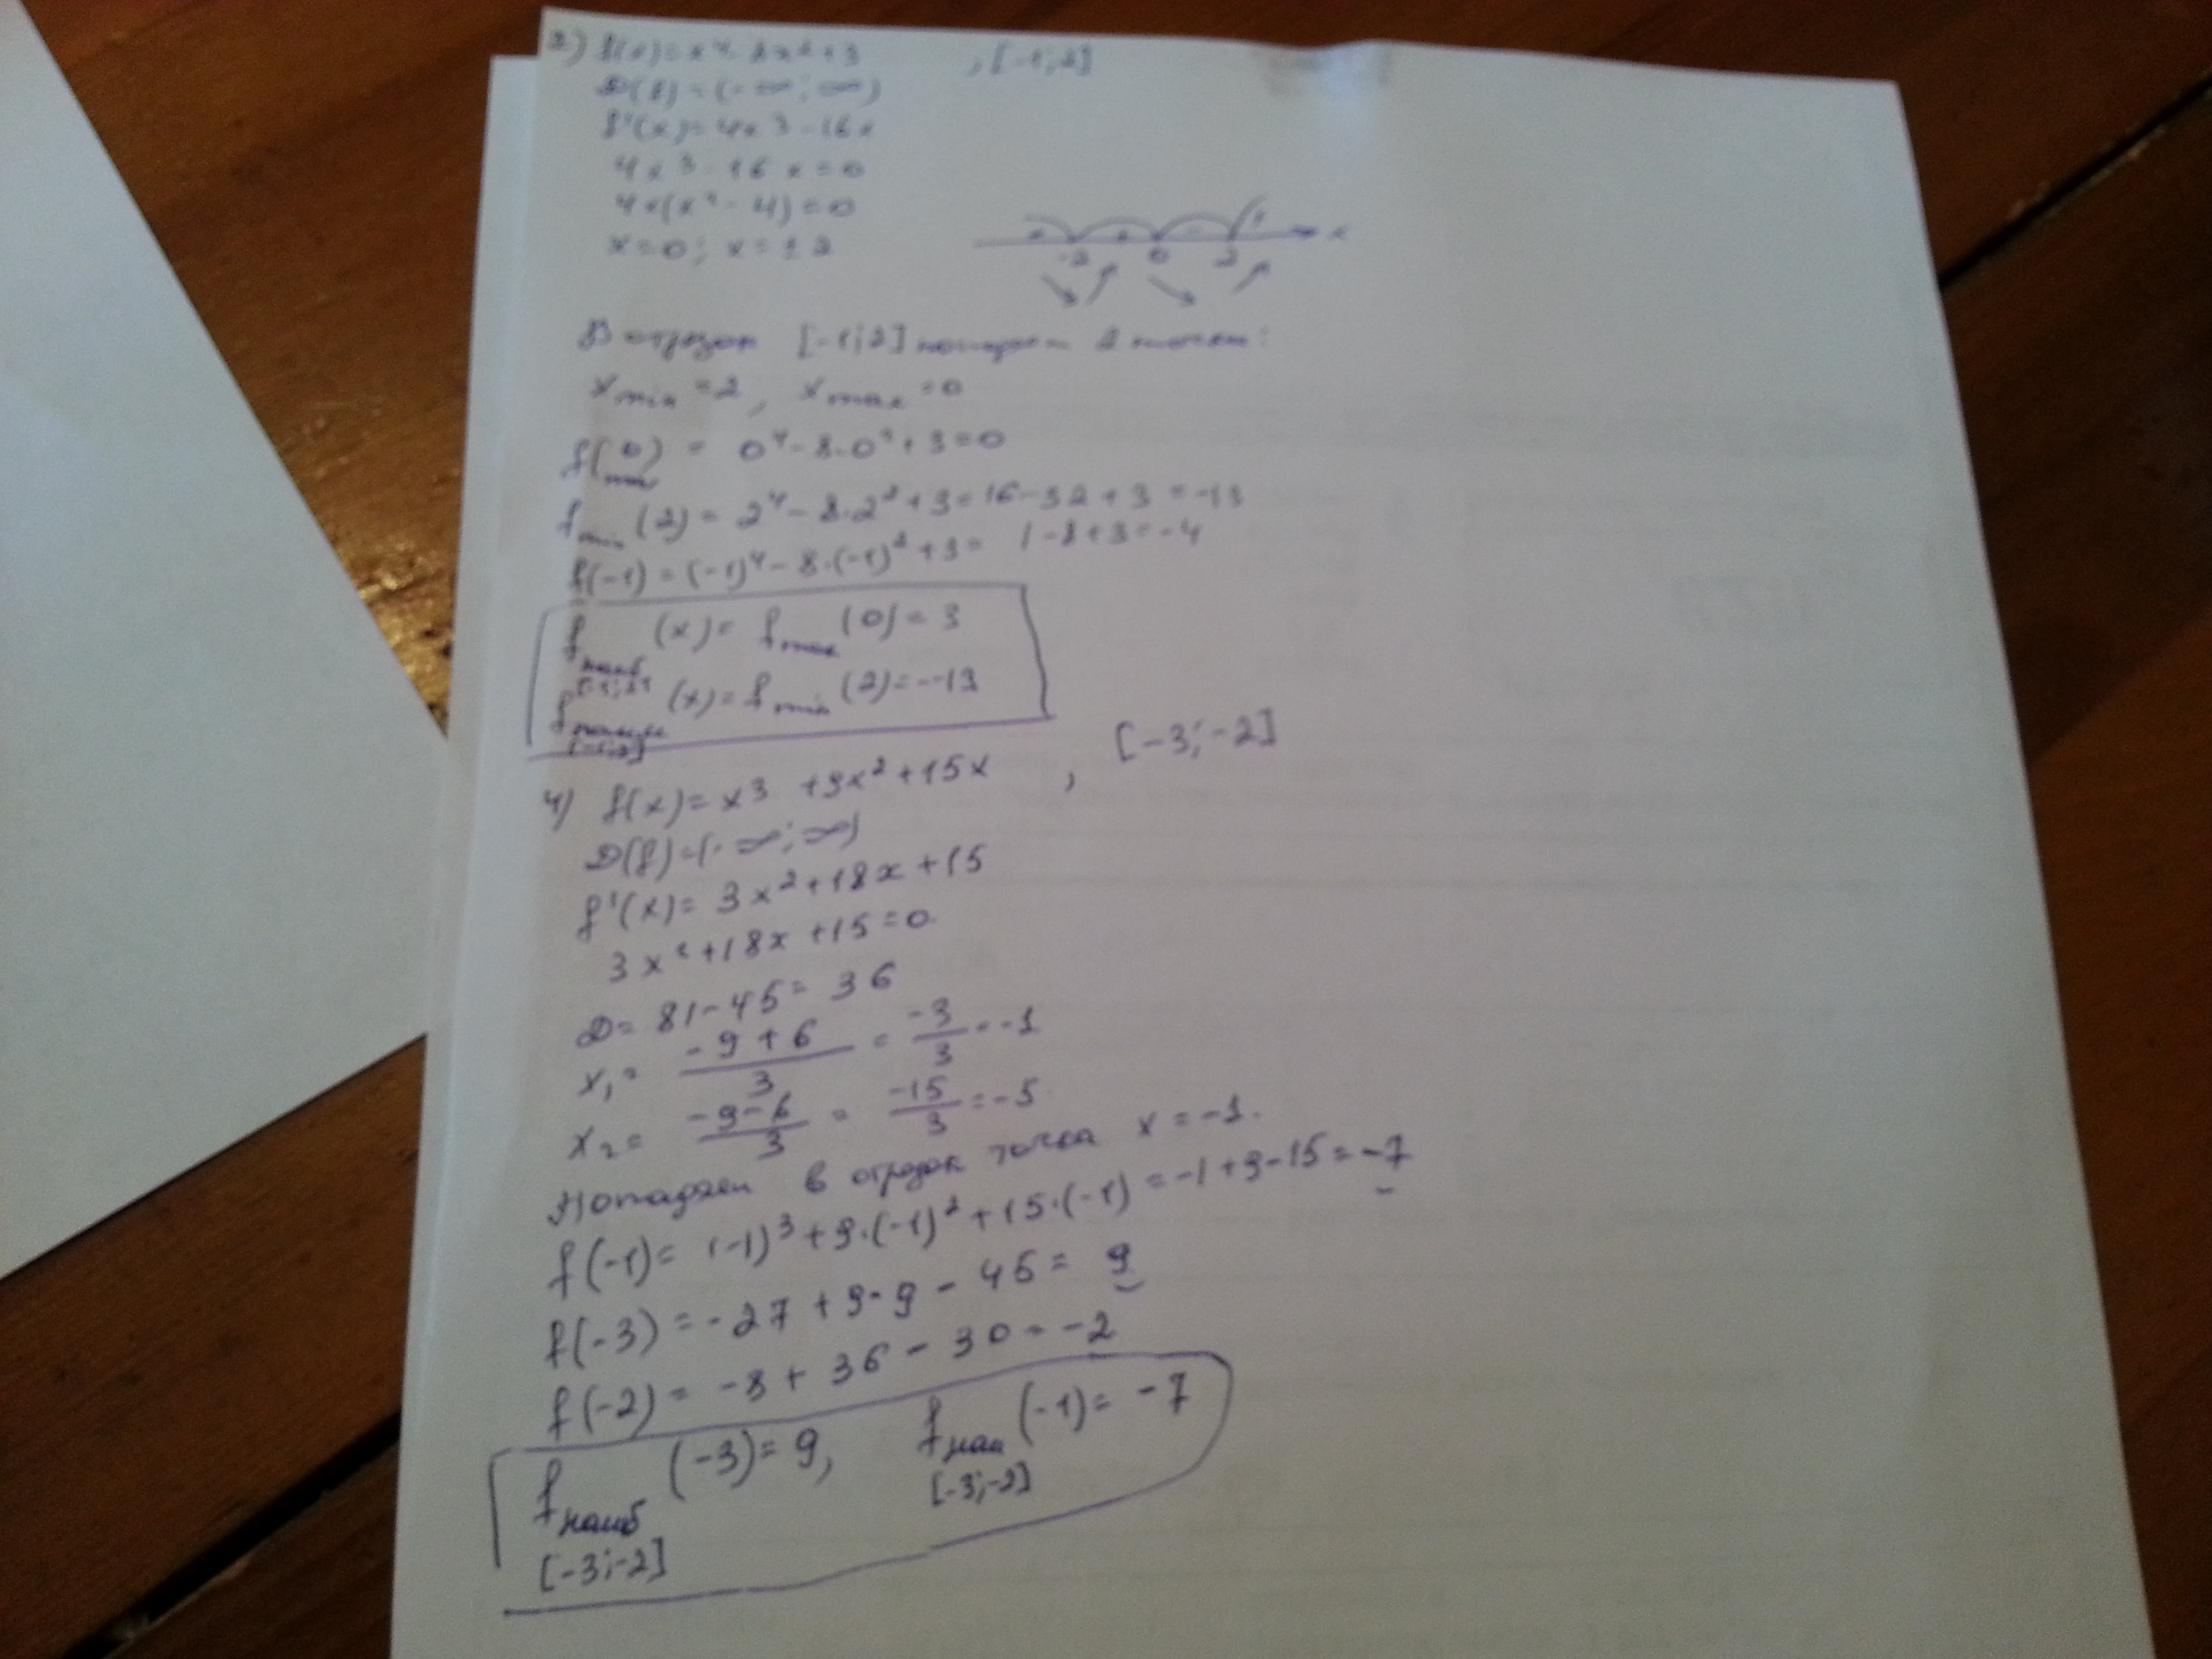 2) f(x)=x⁴-8x²+3 , [-1;2]
D(f)=(-∞;∞)
f'(x)=4x3-16x
4x3-16x=0
4x(x²-4)=0
x=0; x=±2
- + - + x
-2 0 2
В отрезок [-1;2] попадает 2 точки:
x min =2, x max =0
f(0) = 0⁴-8·0²+3=0
max
f min (2)= 2⁴-8·2²+3=16-32+3=-13
f(-1)=(-1)⁴-8·(-1)²+3= 1-8+3=-4
f наиб (x)= f max (0)=3
[-1;2]
f наим (x)= f min (2)=-13
[-1;2]
4) f(x)=x3 +9x²+15x , [-3;-2]
D(f)=(-∞;∞)
f'(x)=3x²+18x+15
3x²+18x+15=0
D=81-45=36
x₁= (-9+6)/3 = -3/3 =-1
x₂= (-9-6)/3 = -15/3 =-5
Попадает в отрезок точка x=-1.
f(-1)= (-1)³+9·(-1)²+15·(-1)=-1+9-15=-7
f(-3)=-27+9·9-45= 9
f(-2)=-8+36-30=-2
f наиб (-3)=9, f наи (-1)=-7
[-3;-2] [-3;-2]